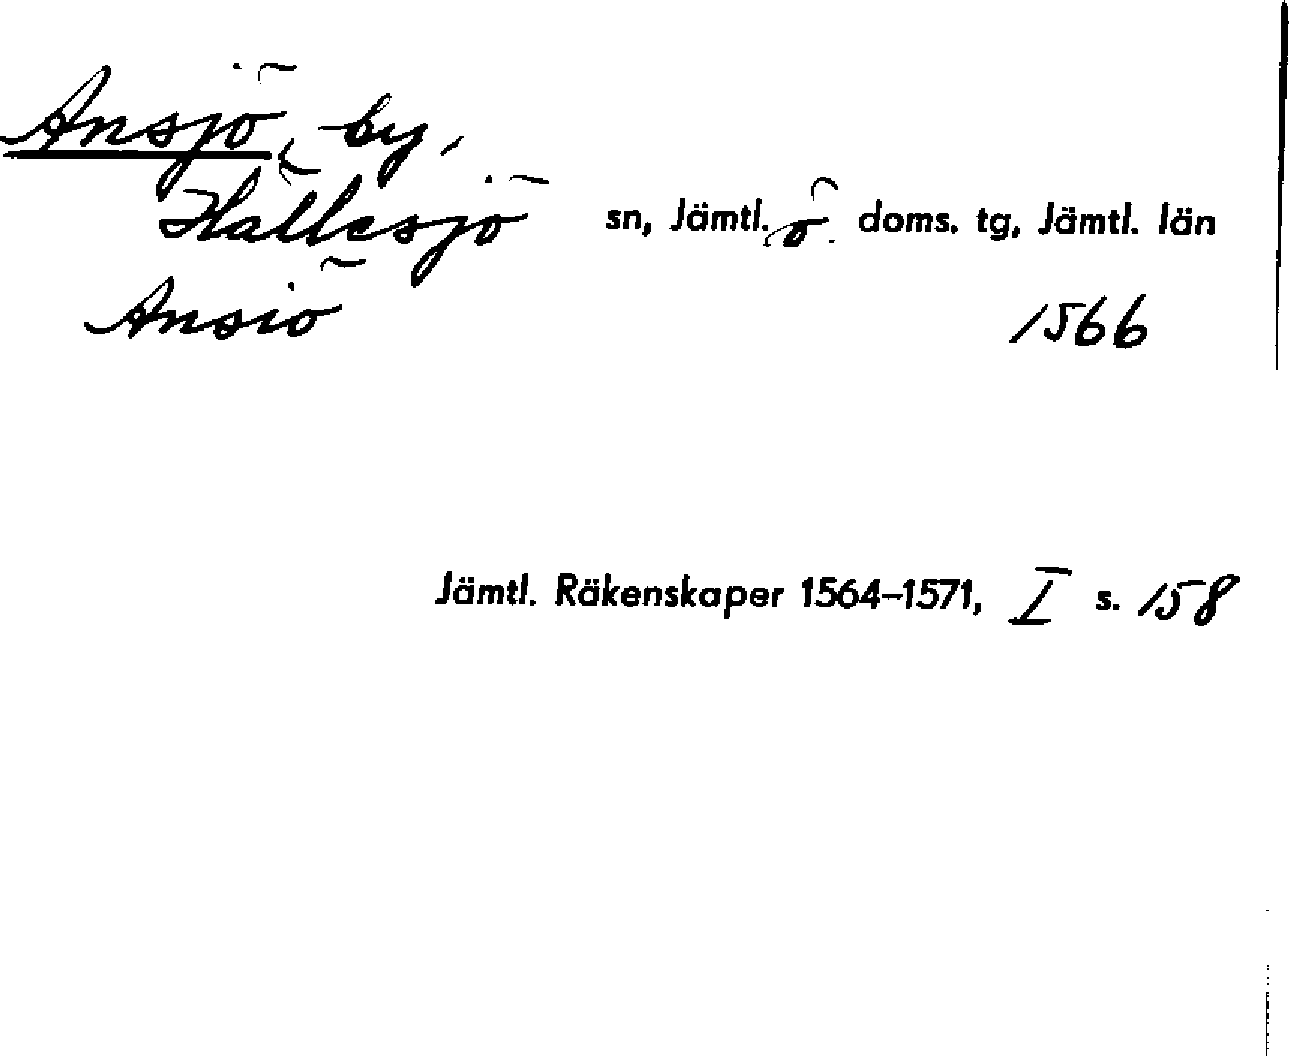 Ansjö, by,
Hällesjö sn, Jämtl. ö. doms. tg, Jämtl. län
Ansiö 1566
Jämtl. Räkenskaper 1564–1571, I s. 158